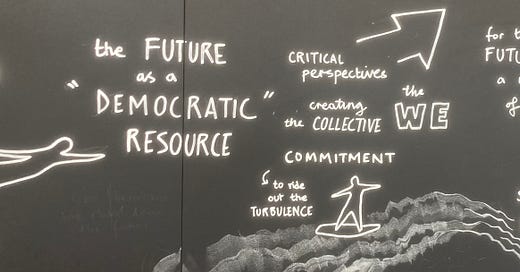 the FUTURE
as a
"DEMOCRATIC"
RESOURCE
CRITICAL
perspectives
creating the
the COLLECTIVE WE
COMMITMENT
to ride
out the
TURBULENCE
for t
FUTU
a